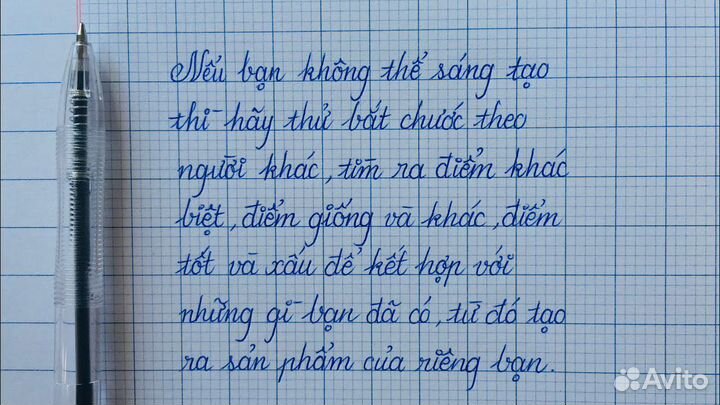 Nếu bạn không thể sáng tạo
thì hãy thử bắt chước theo
người khác, tìm ra điểm khác
biệt, điểm giống và khác, điểm
tốt và xấu để kết hợp với
những gì bạn đã có, từ đó tạo
ra sản phẩm của riêng bạn.
Avito